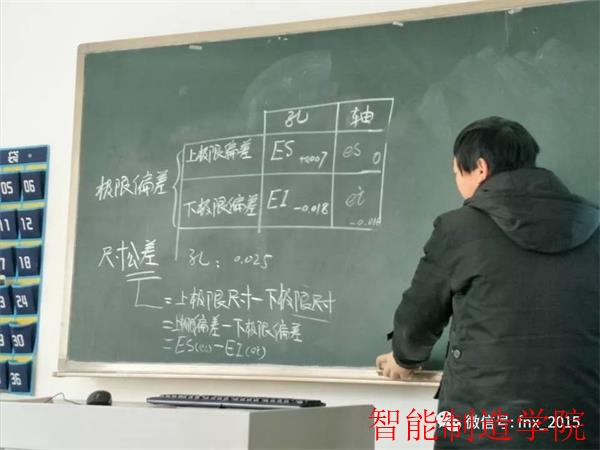 孔 轴
极限偏差 上极限偏差 ES +0.007 es 0
下极限偏差 EI -0.018 ei -0.016
尺寸公差 孔: 0.025
T = 上极限尺寸-下极限尺寸
= 上极限偏差-下极限偏差
= ES(es)-EI(ei)
05 06
11 12
18
24
30
36
微信号: fnx_2015
智能制造学院